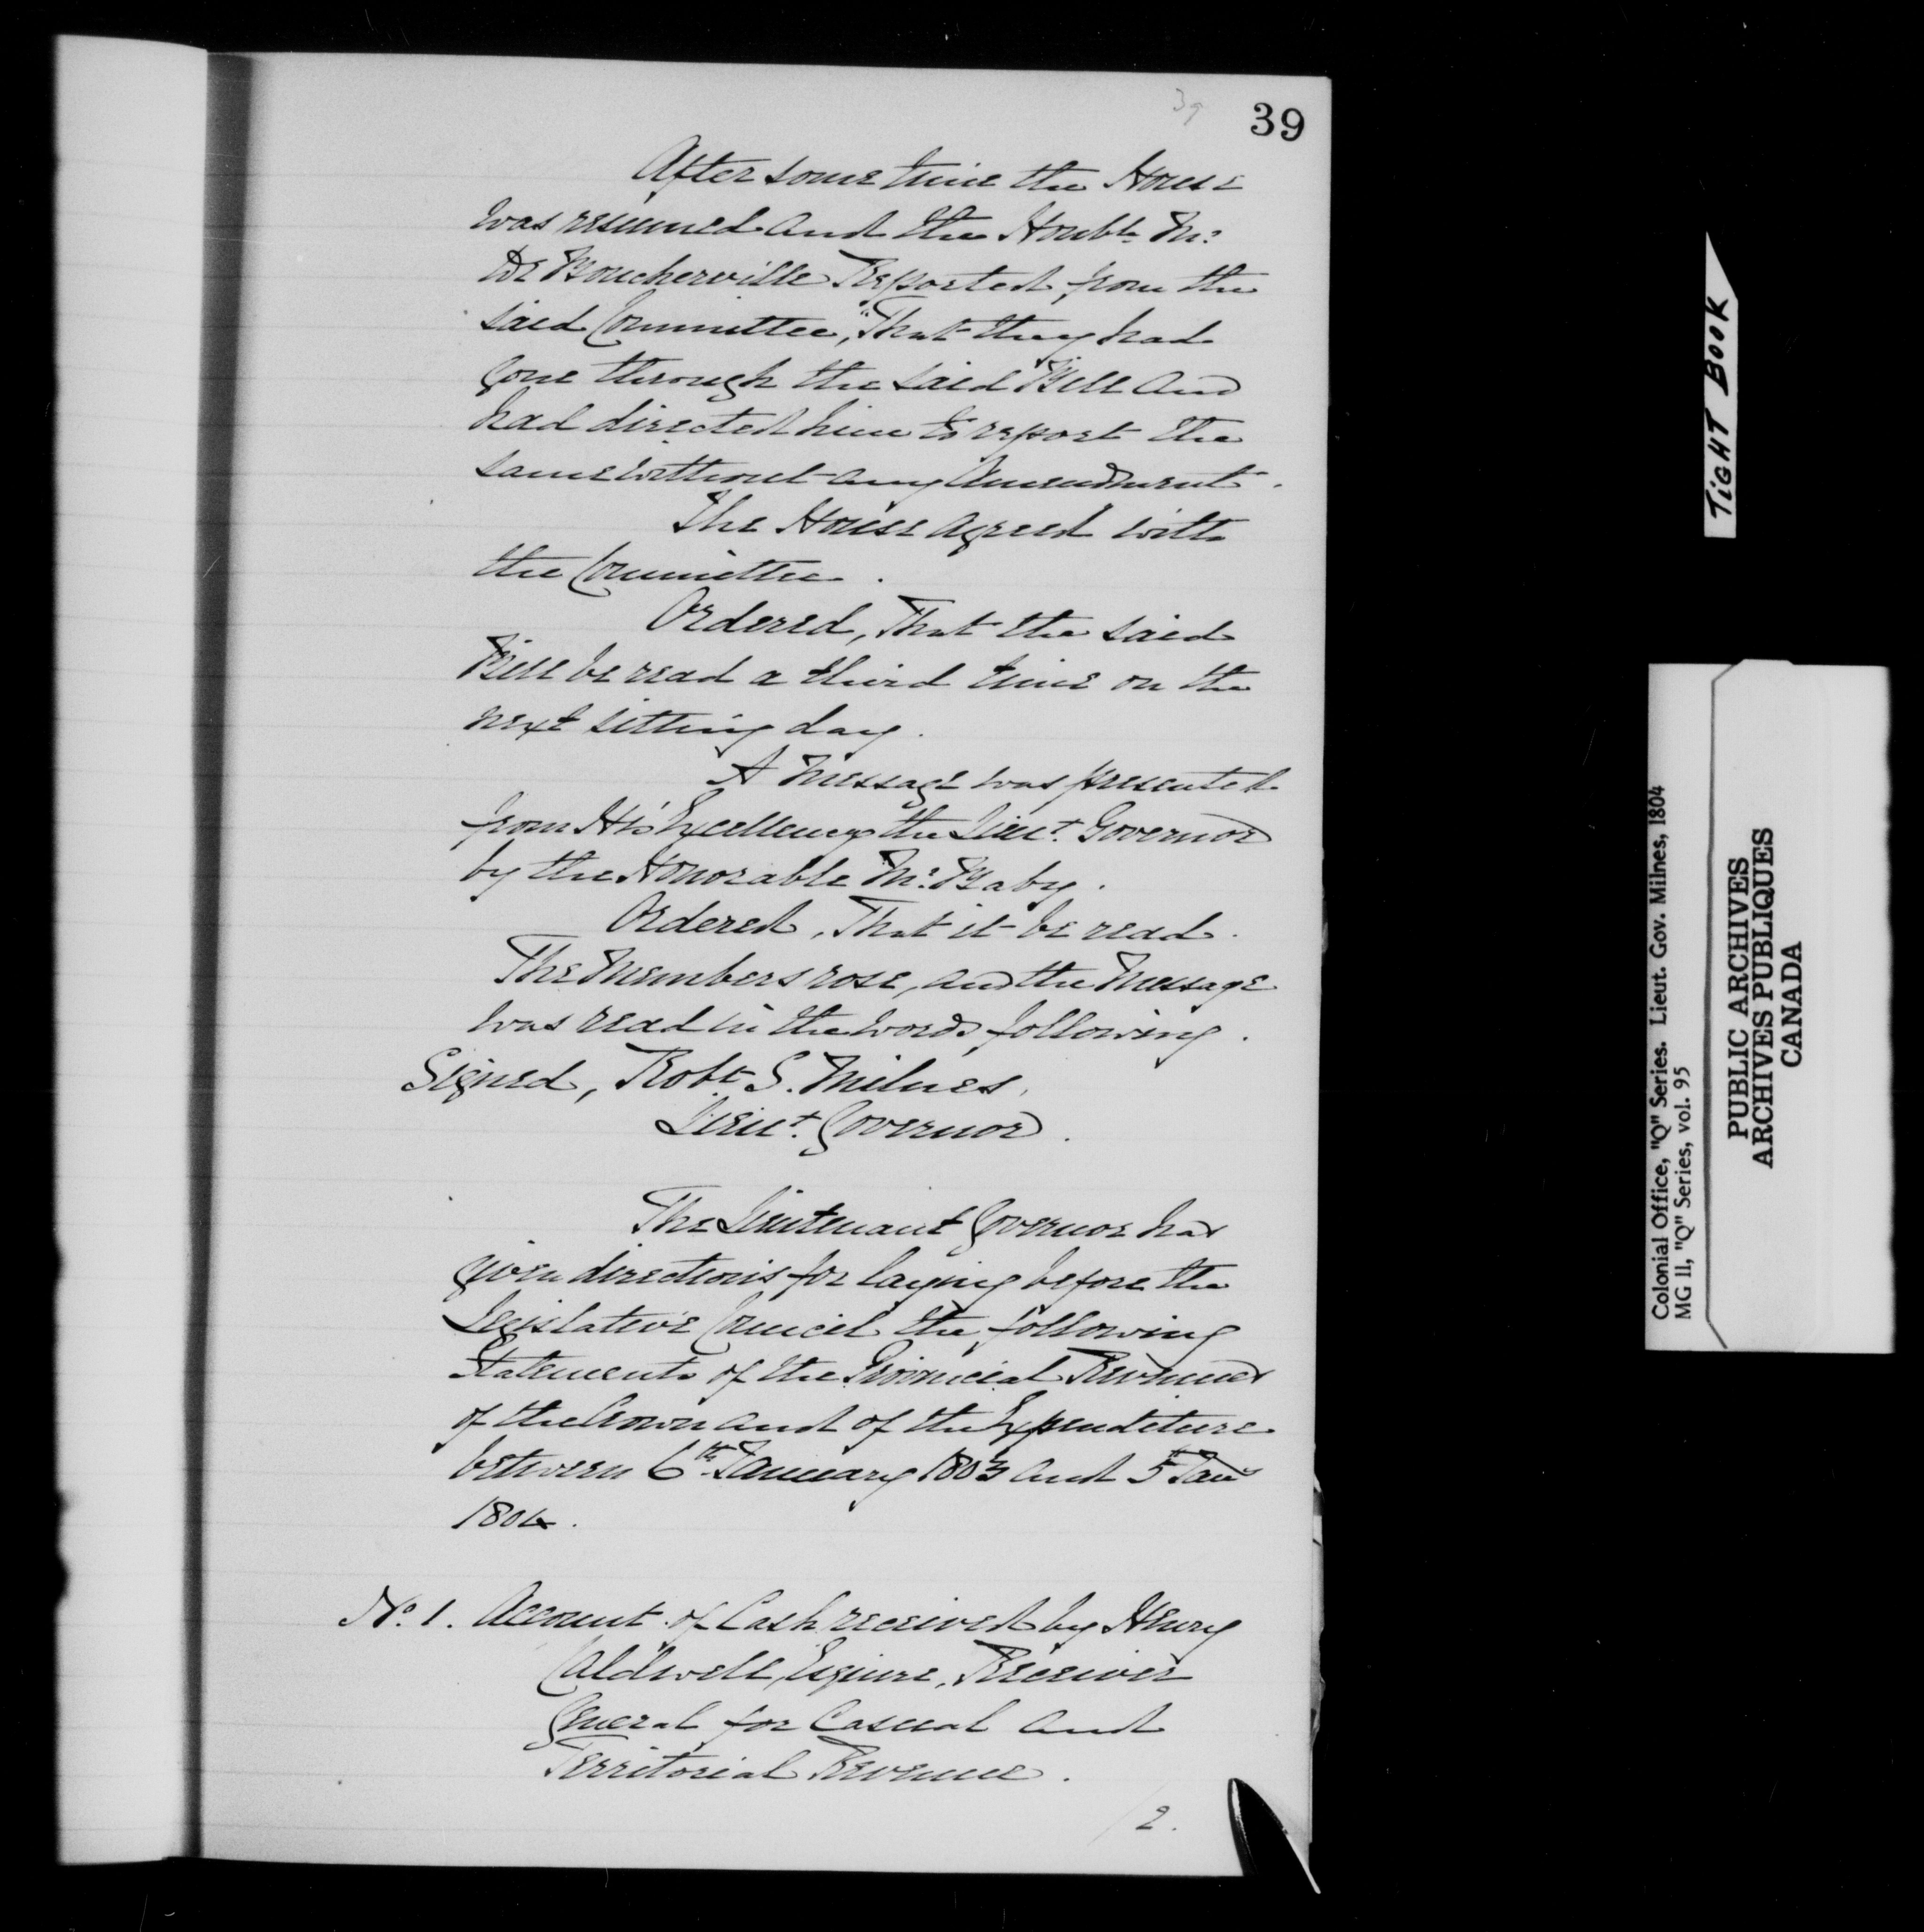 39
39
After some time the House
was resumed and the Honble Mr
De Boucherville Reported from the
said Committee, "That they had
gone through the said Bill and
had directed him to report the
same without any Amendment.
The House agreed with
the Committee.
Ordered, That the said
Bill be read a third time on the
next sitting day.
A Message was presented
from His Excellency the Lieut. Governor
by the Honorable Mr. Baby.
Ordered, That it be read.
The Members rose, and the Message
was read in the words following.
Signed, Robt S. Milnes,
Lieut. Governor.
The Lieutenant Governor has
given directions for laying before the
Legislative Council the following
Statements of the Provincial Revenues
of the Crown and of the Expenditure
between 6th January 1803 and 5th Jany
1804.
No. 1. Account of Cash received by Henry
Caldwell, Esquire, Receiver
General for Casual and
Territorial Revenue.
/2.
TIGHT BOOK
Colonial Office, "Q" Series. Lieut. Gov. Milnes, 1804
MG 11, "Q" Series, vol. 95
PUBLIC ARCHIVES
ARCHIVES PUBLIQUES
CANADA